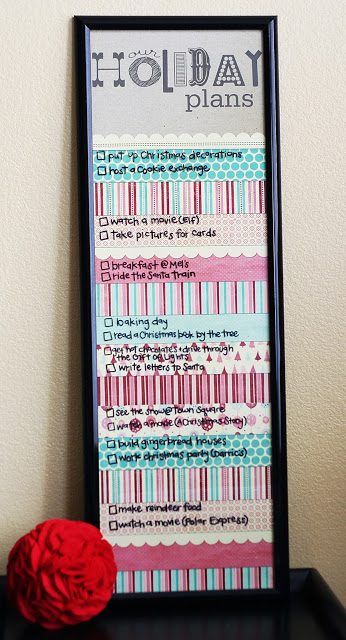 our
HOLIDAY
plans
put up Christmas decorations
host a cookie exchange
watch a movie (Elf)
take pictures for cards
breakfast @ Mel's
ride the Santa train
baking day
read a Christmas book by the tree
get hot chocolates + drive through
the Gift of Lights
write letters to Santa
see the snow @ Town Square
watch a movie (A Christmas Story)
build gingerbread houses
work christmas party (Darric's)
make reindeer food
watch a movie (Polar Express)